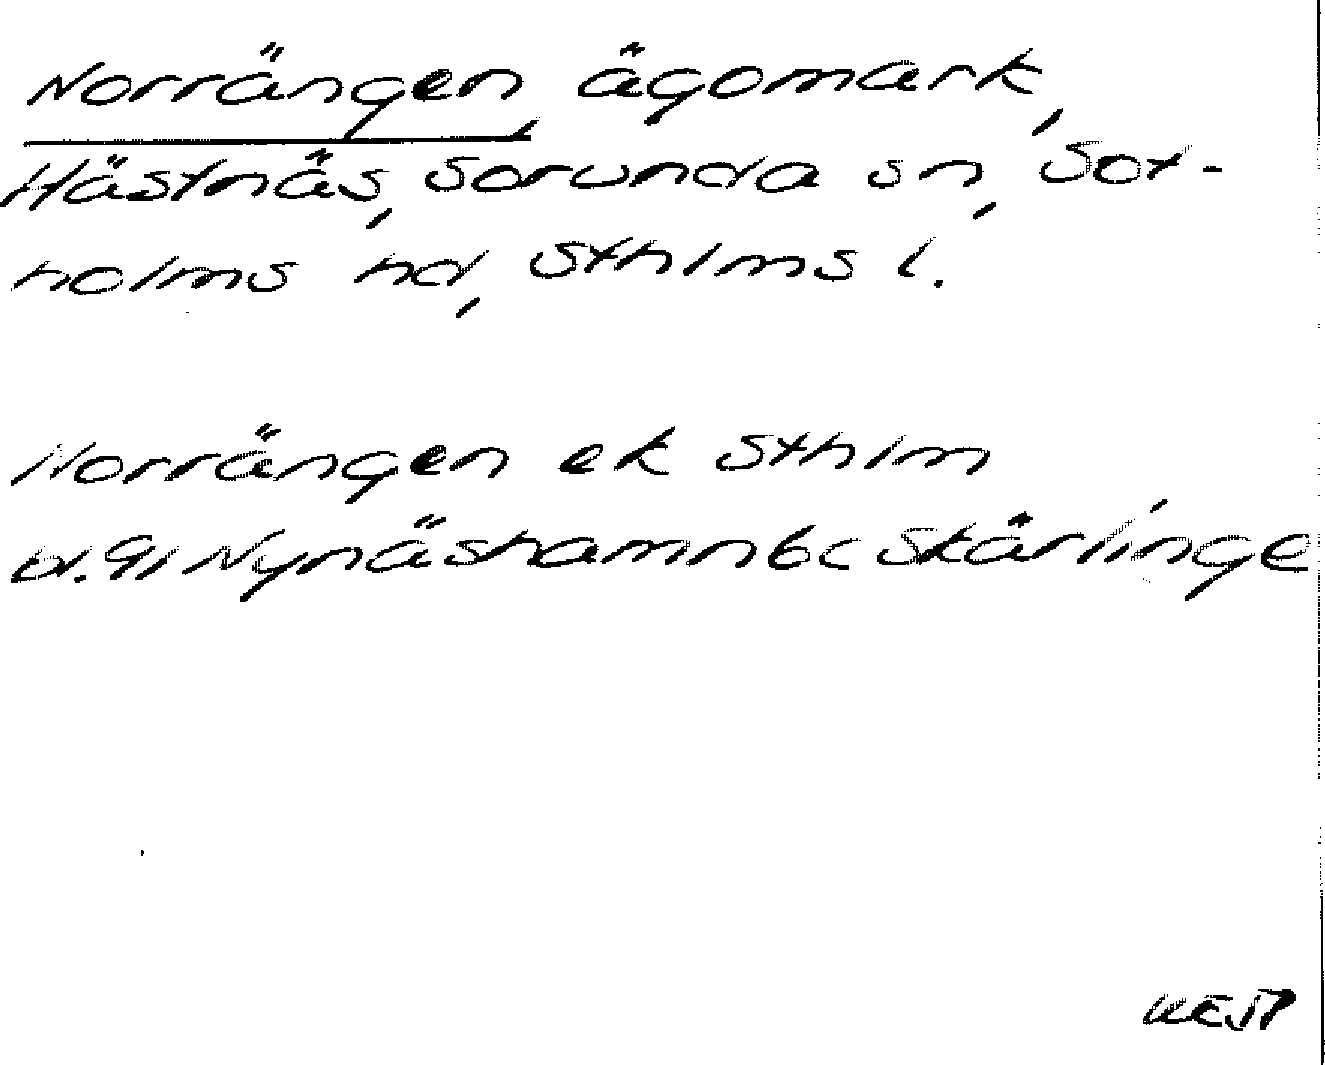 Norrängen, ägomark,
Hästnäs, Sorunda sn, Sot-
holms hd, Sthlms l.
Norrängen ek Sthlm
bl. 91 Nynäshamn 6c Skårlinge